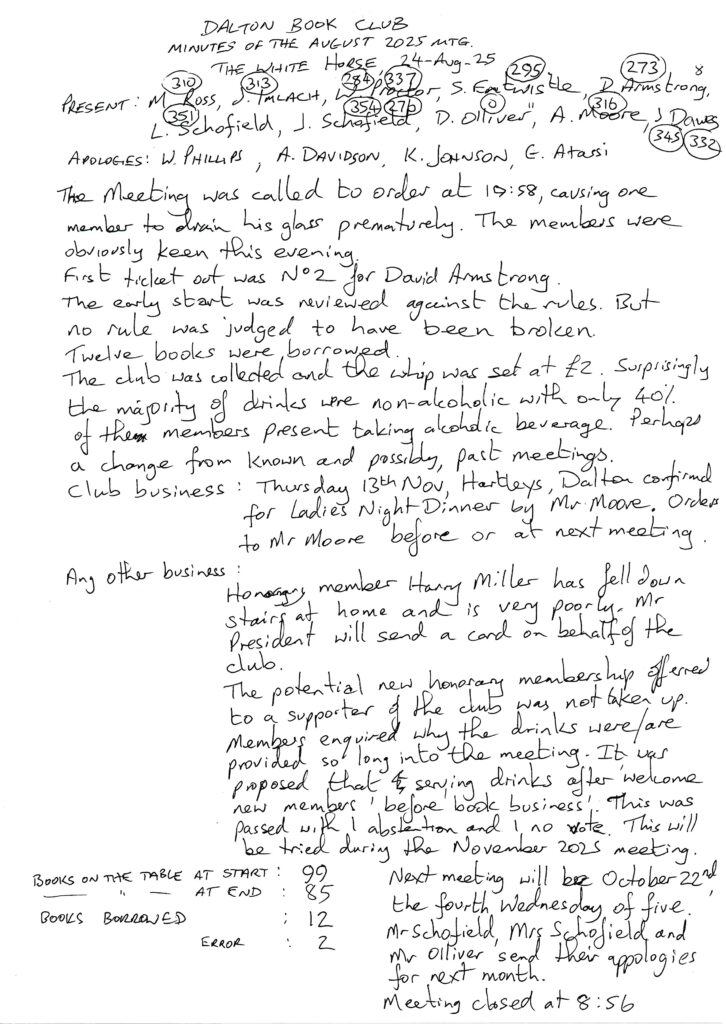 DALTON BOOK CLUB
MINUTES OF THE AUGUST 2025 MTG.
THE WHITE HORSE, 24-Aug-25
310 313 284 337 295 273 8
PRESENT: M. ROSS, J. IMLACH, Proctor, S. Entwistle, D. Armstrong,
351 354 276 0 316
L. Schofield, J. Schofield, D. Olliver", A. Moore, J Dawes
345 332
APOLOGIES: W. PHILLIPS, A. DAVIDSON, K. JOHNSON, E. Atassi
The Meeting was called to order at 19:58, causing one
member to drain his glass prematurely. The members were
obviously keen this evening.
First ticket out was No2 for David Armstrong.
The early start was reviewed against the rules. But
no rule was judged to have been broken.
Twelve books were borrowed.
The club was collected and the whip was set at £2. Surprisingly
the majority of drinks were non-alcoholic with only 40%
of them members present taking alcoholic beverage. Perhaps
a change from known and possibly, past meetings.
Club business: Thursday 13th Nov, Hartleys, Dalton confirmed
for Ladies Night Dinner by Mr Moore. Orders
to Mr Moore before or at next meeting.
Any other business:
Honorary member Harry Miller has fell down
stairs at home and is very poorly. Mr
President will send a card on behalf of the
club.
The potential new honorary membership offered
to a supporter of the club was not taken up.
Members enquired why the drinks were/are
provided so long into the meeting. It was
proposed that serving drinks after 'welcome
new members' before 'book business'. This was
passed with 1 abstention and 1 no vote. This will
be tried during the November 2025 meeting.
BOOKS ON THE TABLE AT START: 99
— " — AT END: 85
BOOKS BORROWED : 12
ERROR : 2
Next meeting will be October 22nd,
the fourth Wednesday of five.
Mr Schofield, Mrs Schofield and
Mr Olliver send their appologies
for next month.
Meeting closed at 8:56